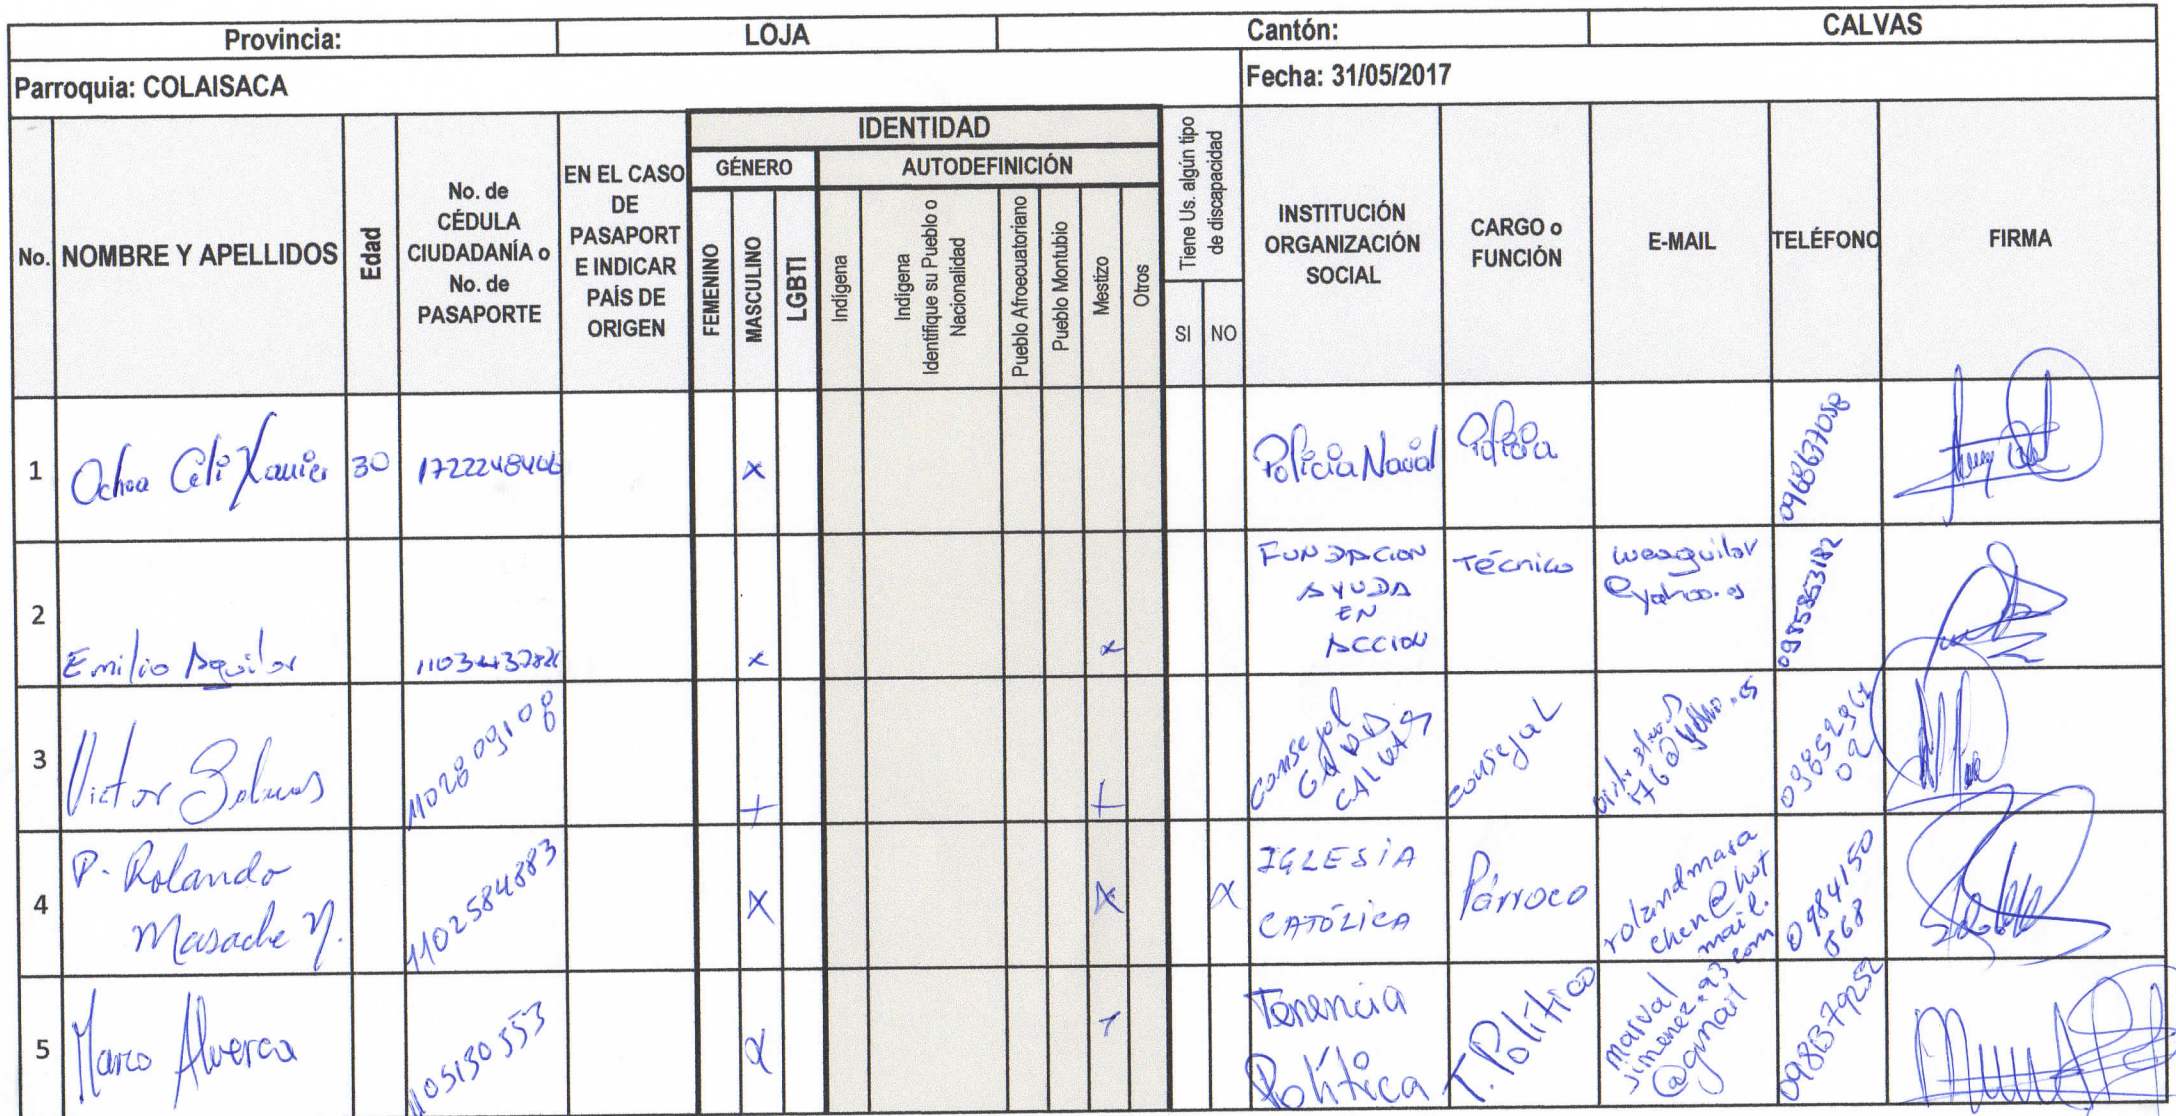 Provincia: LOJA Cantón: CALVAS
Parroquia: COLAISACA Fecha: 31/05/2017
No. NOMBRE Y APELLIDOS Edad No. de CÉDULA CIUDADANÍA o No. de PASAPORTE
EN EL CASO DE PASAPORT E INDICAR PAÍS DE ORIGEN
IDENTIDAD
GÉNERO AUTODEFINICIÓN
FEMENINO MASCULINO LGBTI
Indígena
Indígena Identifique su Pueblo o Nacionalidad
Pueblo Afroecuatoriano
Pueblo Montubio
Mestizo
Otros
Tiene Us. algún tipo de discapacidad
SI NO
INSTITUCIÓN ORGANIZACIÓN SOCIAL
CARGO o FUNCIÓN
E-MAIL
TELÉFONO
FIRMA
1 Ochoa Celi Xavier 30 x 0968637058
2 Emilio Aguilar x x FUNDACION AYUDA EN ACCION Técnico weaguilar @yahoo.es 0985853182
3 Victor 1102809108 x x consejal CALVAS consejal
4 P. Rolando Masache M. 1102584883 x x x IGLESIA CATÓLICA Párroco rolandmasa chen@hot mail. com 0984150 568
5 Marco Alverca x Tenencia Política T. Político marval jimenez.93 @gmail